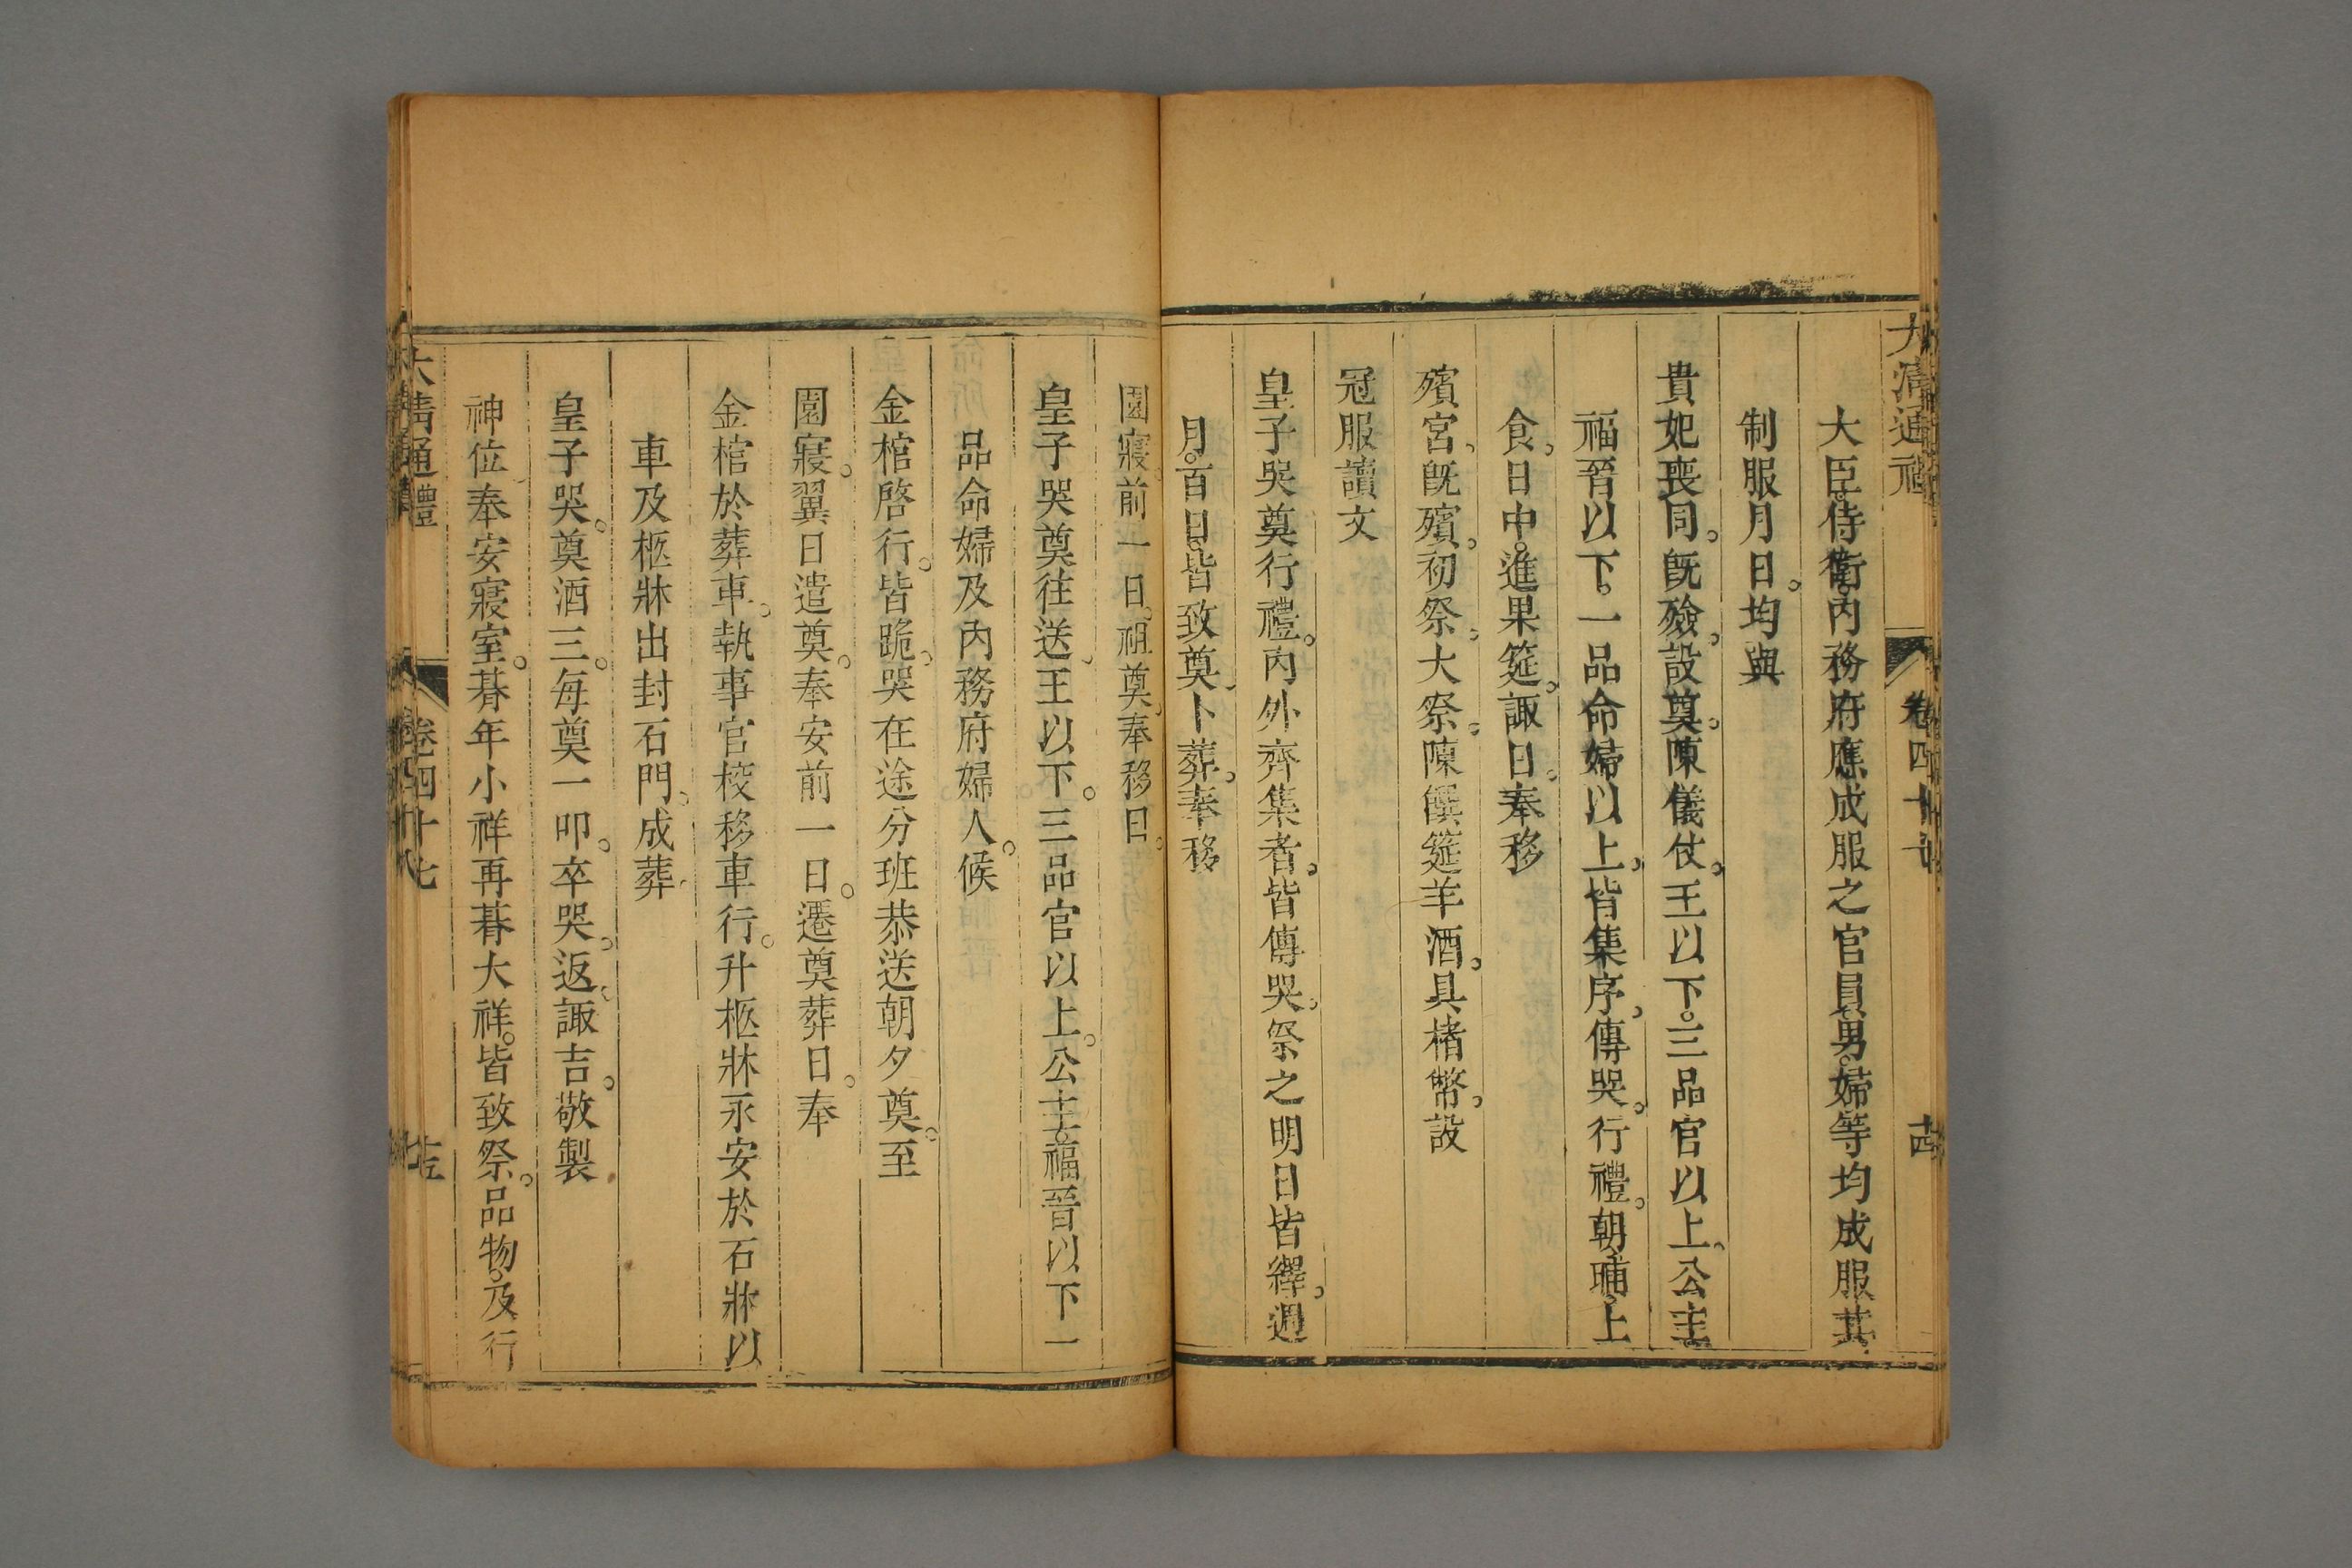 大清通禮 卷四十七 十四
大臣。侍衛。內務府應成服之官員。男。婦等均成服。其
制服月日。均與
貴妃喪同。既殮。設奠。陳儀仗。王以下。三品官以上。公主
福晉以下。一品命婦以上。皆集序。傳哭。行禮。朝晡。上
食。日中。進果筵。諏日。奉移
殯宮。既殯。初祭。大祭。陳饌筵羊酒。具楮幣。設
冠服讀文
皇子哭奠行禮。內外齊集者。皆傳哭。祭之明日皆繹。週
月。百日。皆致奠。卜葬。奉移
園寢。前一日。祖奠。奉移日。
皇子哭奠往送。王以下。三品官以上。公主福晉以下一
品命婦及內務府婦人。候
金棺啓行。皆跪。哭在途分班恭送朝夕奠。至
園寢。翼日遣奠。奉安前一日。遷奠葬日。奉
金棺於葬車。執事官校移車行。升柩牀永安於石牀以
車及柩牀出封石門。成葬。
皇子哭。奠酒三。每奠一叩。卒哭。返。諏吉。敬製
神位奉安寢室。朞年小祥再朞大祥。皆致祭。品物。及行
大清通禮 卷四十七 十五